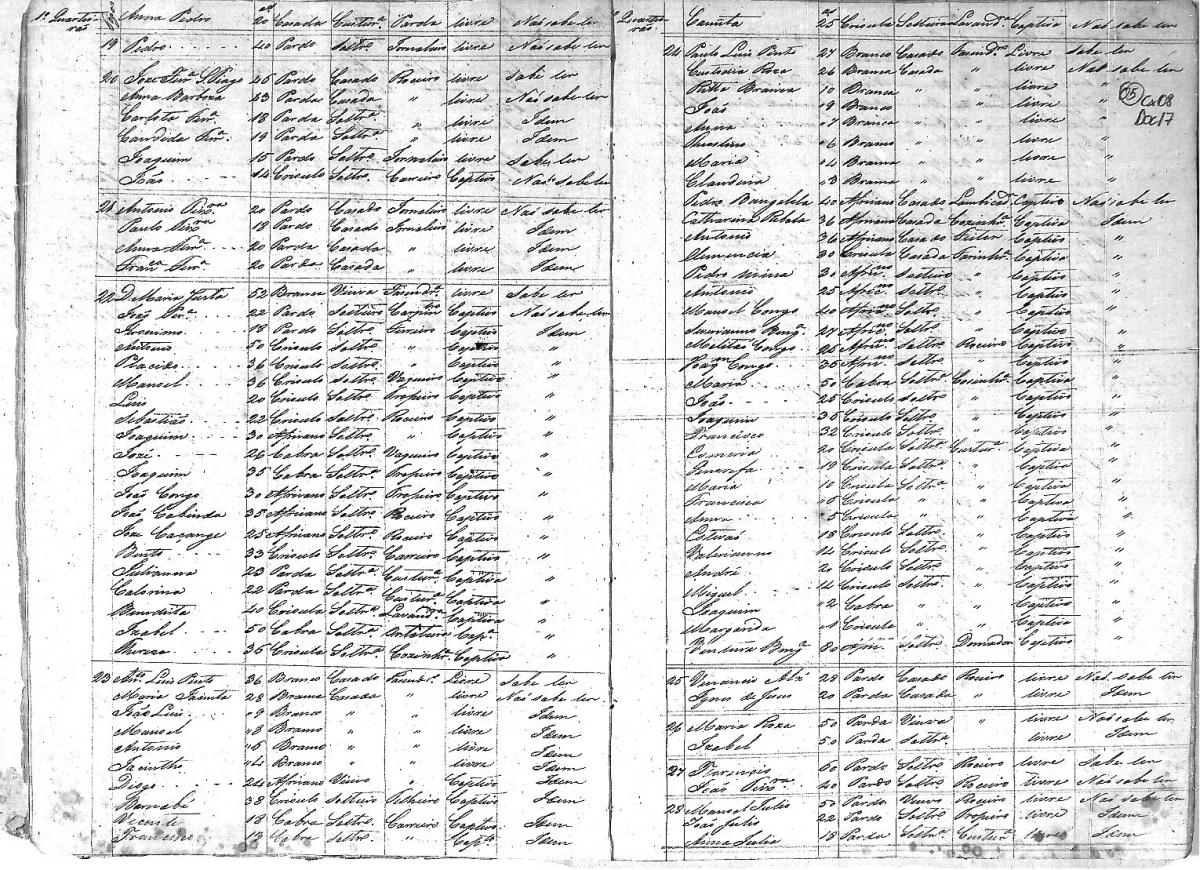 1º Quarteirão Anna Pedro 20 Casada Custurª Parda livre Naõ sabe ler
19 Pedro 40 Pardo Soltrº Jornaleiro livre Naõ sabe ler
20 45 Pardo Casado Roceiro livre Sabe ler
Anna Barboza 43 Parda Casada " livre Naõ sabe ler
Carlota 18 Parda Soltrª " livre Idem
Candida 19 Parda Soltrª " livre Idem
Joaquim 15 Pardo Soltrº Jornaleiro livre Sabe ler
João 14 Crioulo Soltrº Carreiro Captivo Naõ sabe ler
21 Antonio 20 Pardo Casado Jornaleiro livre Naõ sabe ler
Paulo 18 Pardo Casado Jornaleiro livre Idem
Anna 20 Parda Casada " livre Idem
Franca 20 Parda Casada " livre Idem
22 D Maria Justa 52 Branca Viuva Fasendrª livre Sabe ler
João 22 Pardo Solteiro Carpinteiro Captivo Naõ sabe ler
Jeronimo 18 Pardo Soltrº Ferreiro Captivo Idem
Antonio 50 Crioulo Soltrº " Captivo "
Placido 36 Crioulo Soltrº Captivo "
Manoel 36 Crioulo Soltrº Vaqueiro Captivo "
Luis 20 Crioulo Soltrº Tropeiro Captivo "
Sebastião 22 Crioulo Soltrº Roceiro Captivo "
Joaquim 30 Africano Soltrº " Captivo "
José 26 Cabra Soltrº Vaqueiro Captivo "
Joaquim 35 Cabra Soltrº Tropeiro Captivo "
João Congo 30 Africano Soltrº Tropeiro Captivo "
João Cabinda 35 Africano Soltrº Roceiro Captivo "
José Caçange 25 Africano Soltrº Roceiro Captivo "
Bento 33 Crioulo Soltrº Carreiro Captivo "
Julianna 23 Parda Soltrª Custurª Captiva "
Catarina 22 Parda Soltrª Custurª Captiva "
Benedicta 40 Crioula Soltrª Lavandª Captiva "
Izabel 50 Cabra Soltrª Capª "
Thereza 36 Crioula Soltrª Cozinhrª Captiva "
23 Antº Luis Pinto 36 Branco Casado Fasendrº Livre Sabe ler
Maria Jacinta 28 Branca Casada " livre Naõ sabe ler
João Luis 9 Branco " " livre Idem
Manoel 8 Branco " " livre Idem
Antonio 6 Branco " " livre Idem
Jacintho 4 Branco " " livre Idem
Diogo 24 Africano Viuvo " Captivo Idem
Barnabé 38 Crioulo Solteiro Captivo Idem
Vicente 18 Cabra Soltrº Carreiro Captivo Idem
Francisco 13 Cabra Soltrº " Capº Idem
Quarteirão 25 Crioula Solteira Lavandª Captiva Naõ sabe ler
24 Paulo Luis Pinto 27 Branco Casado Fasendrº Livre Sabe ler
Custodia Roza 26 Branca Casada " livre Naõ sabe ler
Ritta Branca 10 Branca " " livre "
João 9 Branco " " livre "
15 Cx 08
Doc 17
Anna 7 Branca " " livre "
6 Branco " " livre "
Maria 4 Branca " " livre "
Claudina 3 Branca " " livre "
Pedro Bangella 40 Africano Casado Captivo Naõ sabe ler
Catharina Rebola 36 Africana Casada Cozinhrª Captiva Idem
Antonio 36 Africano Casado Feitor Captivo "
30 Crioula Casada Captiva "
Pedro Mina 30 Africno Solteiro " Captivo "
Antonio 25 Africno Soltrº " Captivo "
Manoel Congo 40 Africno Soltrº " Captivo "
27 Africno Soltrº " Captivo "
Congo 25 Africno Soltrº Roceiro Captivo "
Joaqm Congo 35 Africno Soltrº " Captivo "
Maria 50 Cabra Soltrª Cosinhrª Captiva "
João 25 Crioulo Soltrº " Captivo "
Joaquim 35 Crioulo Soltrº " Captivo "
Francisco 32 Crioulo Soltrº " Captivo "
20 Crioula Soltrª Custurª Captiva "
Generosa 19 Crioula Soltrª " Captiva "
Maria 10 Crioula Soltrª " Captiva "
Francisca 6 Crioula " " Captiva "
Anna 5 Crioula " " Captiva "
Estevaõ 18 Crioulo Soltrº " Captivo "
Valerianno 14 Crioulo Soltrº " Captivo "
André 20 Crioulo Soltrº " Captivo "
Miguel 14 Crioulo Soltrº " Captivo "
Joaquim 2 Cabra " " Captivo "
Margarida 1 Crioula " " Captiva "
Ventura Bangª 80 Africº Soltrº Domador Captivo "
25 Venancio 28 Pardo Casado Roceiro livre Naõ sabe ler
Ignes de Jesus 20 Parda Casada " livre Idem
26 Maria Roza 50 Parda Viuva " livre Naõ sabe ler
Izabel 50 Parda Soltrª livre Idem
27 Florencio 60 Pardo Soltrº Roceiro livre Sabe ler
João 40 Pardo Soltrº Roceiro livre Naõ sabe ler
28 Manoel Julio 50 Pardo Viuvo Roceiro livre Naõ sabe ler
João Julio 22 Pardo Soltrº Tropeiro livre Idem
Anna Julia 18 Parda Soltrª Custurª livre Idem